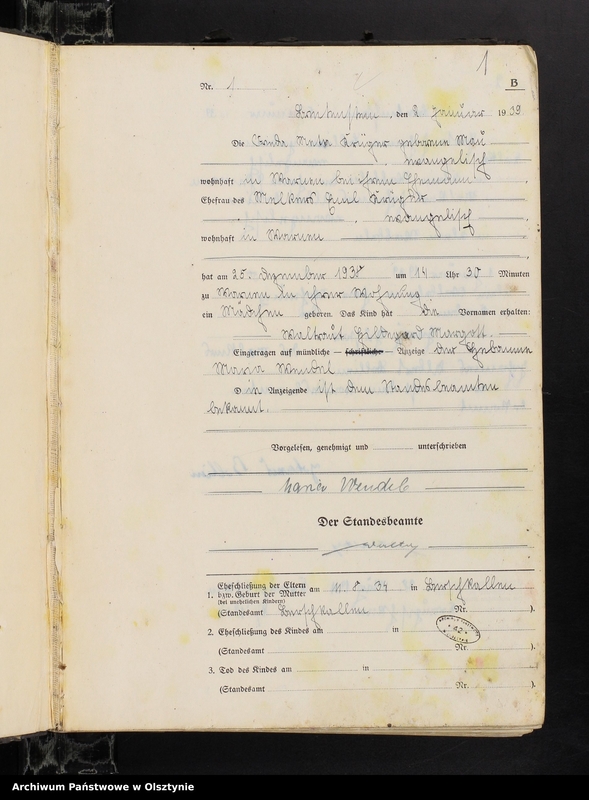 1
B
Nr. 1
, den 2 Januar 1939
Die Meta Krüger geborene
, evangelisch
wohnhaft in bei ihrem Ehemann,
Ehefrau des Melkers Emil Krüger
, evangelisch
wohnhaft in
hat am 25. Dezember 1938 um 14 Uhr 30 Minuten
zu in ihrer Wohnung
ein Mädchen geboren. Das Kind hat die Vornamen erhalten:
Waltraut Hildegard Margott.
Eingetragen auf mündliche – schriftliche – Anzeige der Hebamme
Maria Wendel
D ie Anzeigende ist dem Standesbeamten
bekannt.
Vorgelesen, genehmigt und unterschrieben
Maria Wendel
Der Standesbeamte
1. Eheschließung der Eltern am 11. 8. 34 in
bzw. Geburt der Mutter
(bei unehelichen Kindern)
(Standesamt Nr. ).
2. Eheschließung des Kindes am in
(Standesamt Nr. ).
3. Tod des Kindes am in
(Standesamt Nr. ).
Archiwum Państwowe w Olsztynie